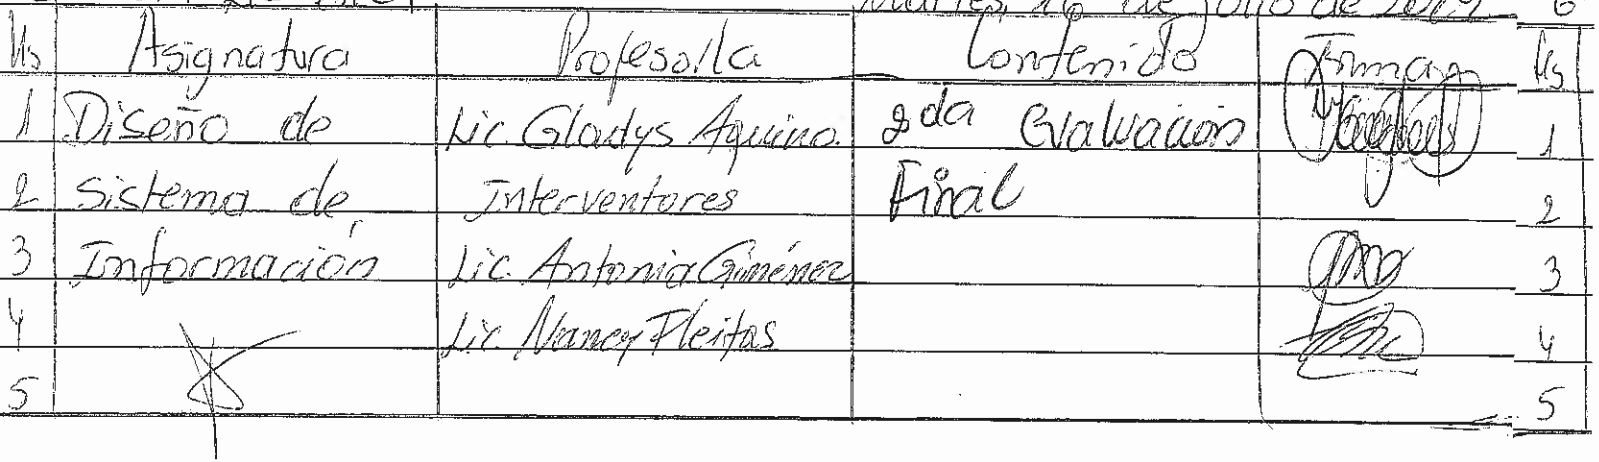 Martes, 16 de julio de 2019 6
Hs Asignatura Profesor/a Contenido Firma Hs
1 Diseño de Lic. Gladys Aquino. 2da Evaluación 1
2 Sistema de Interventores Final 2
3 Información Lic. Antonia Giménez 3
4 Lic. Nancy Fleitas 4
5 5